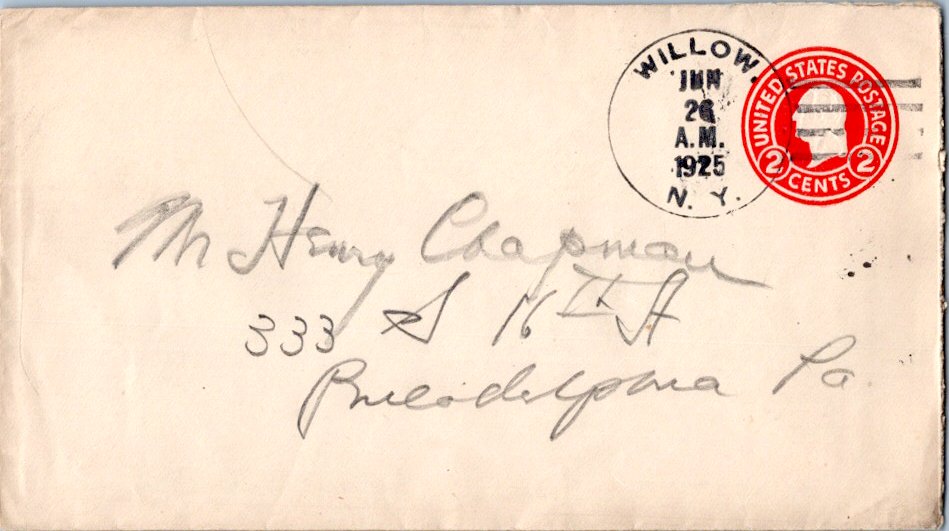 WILLOW.
JUN
26
A.M.
1925
N. Y.
UNITED STATES POSTAGE
2 CENTS 2
Mr Henry Chapman
333 S 16th St
Philadelphia Pa